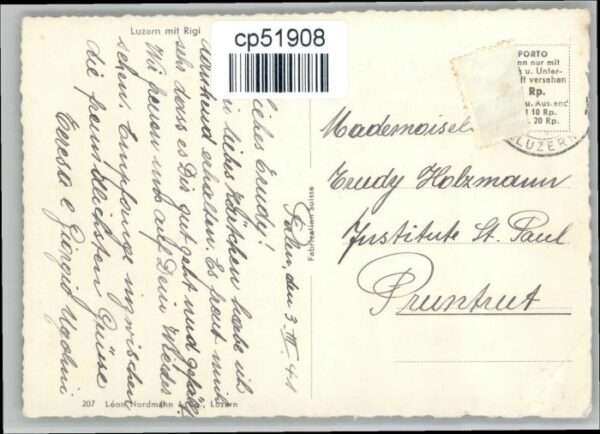 Luzern mit Rigi
cp51908
PORTO
nn nur mit
u. Unter-
ft versehen
Rp.
10 Rp.
20 Rp.
LUZERN
Fabrication Suisse
den 3. 41
liebes Trudy!
liebes Kärtchen habe ich
dankend erhalten. Es freut mich
sehr dass es Dir gut geht und gefällt.
Wir freuen uns auf Dein Wieder-
sehen. Empfange inzwischen
die freundlichsten Grüsse
Teresa e Giorgio
Mademoisel
Trudy Holzmann
Institute St. Paul
Pruntrut
207 Léon Nordmann Luzern